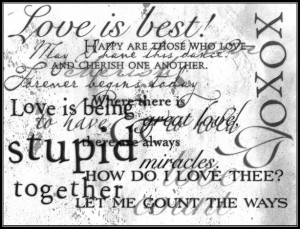 Love is best!
HAPPY ARE THOSE WHO LOVE
May I have this dance?
AND CHERISH ONE ANOTHER.
Forever begins today
Where there is
Love is being
great love,
to have
to hold
stupid
there are always
miracles.
together
HOW DO I LOVE THEE?
love
LET ME COUNT THE WAYS
count
XOXO